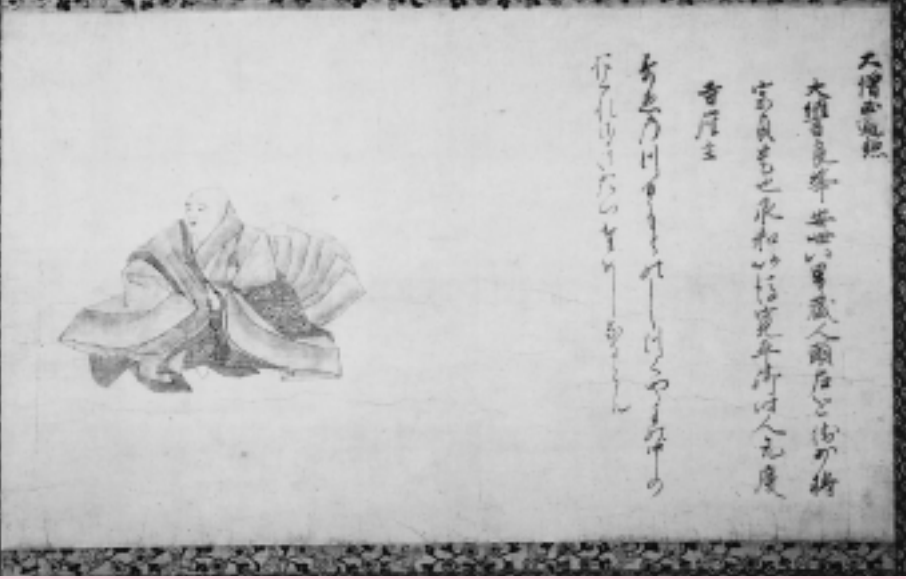 大僧正遍照
大納言良峯安世八男蔵人頭右近衛少将
宗貞是也承和以後寛平御時人元慶
寺座主
すゑ乃川ゆもとのしつくやよの中の
をくれさきたつためしなるらん